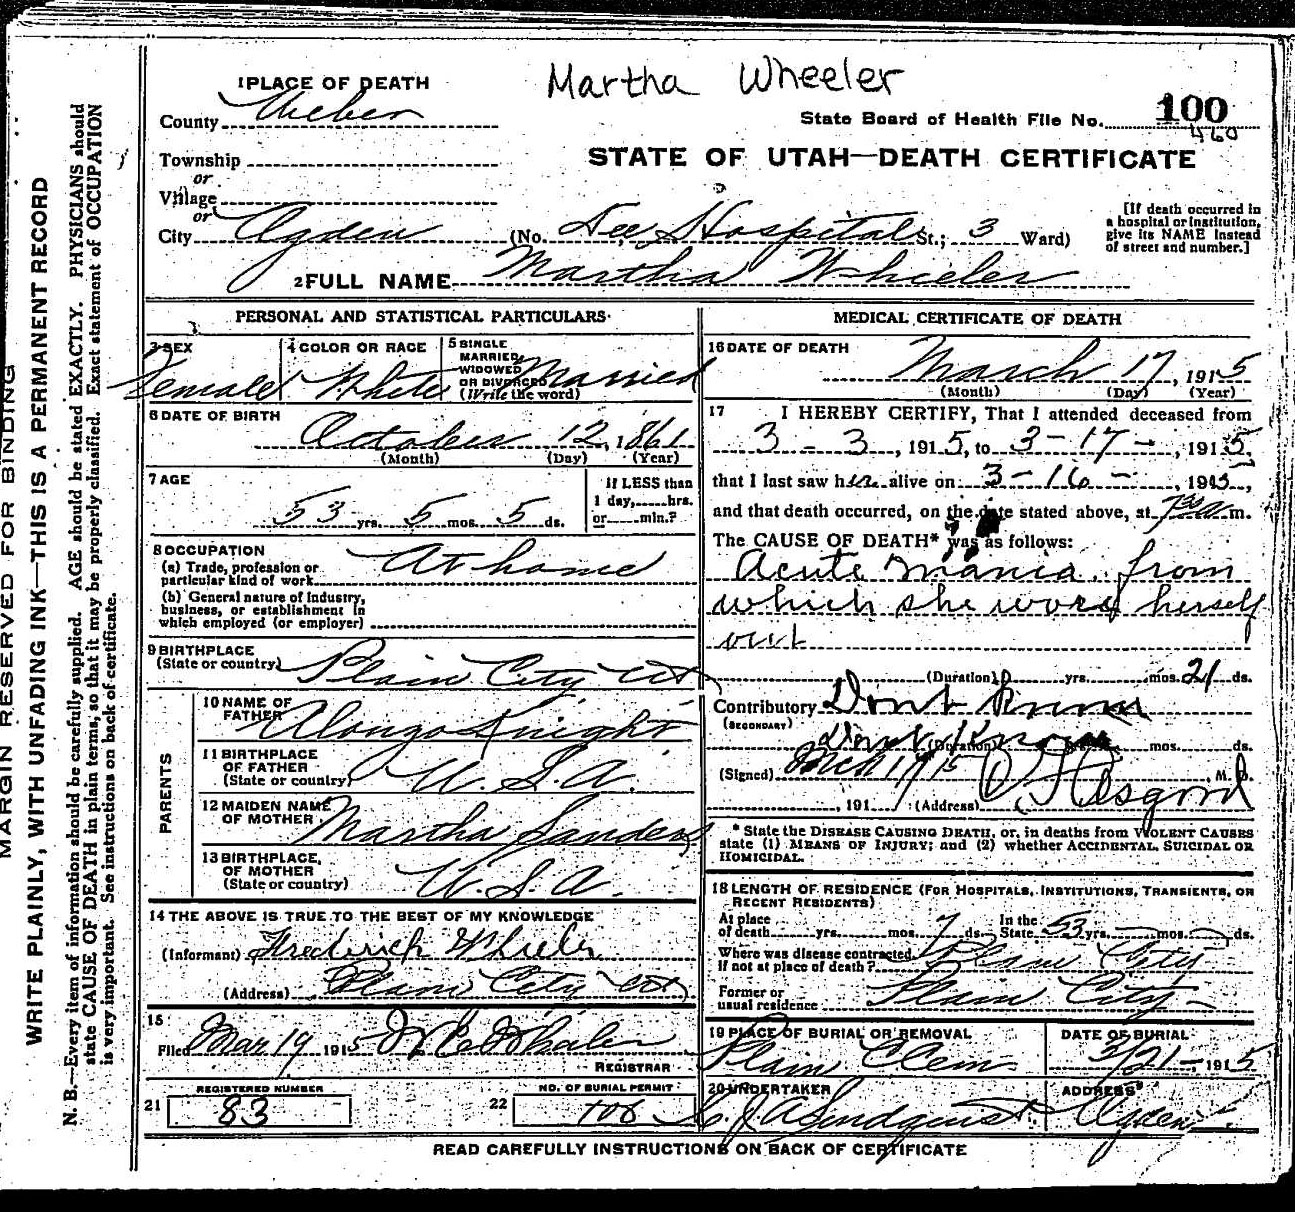 Martha Wheeler
1 PLACE OF DEATH
County Weber
State Board of Health File No. 100
460
Township
or
STATE OF UTAH—DEATH CERTIFICATE
Village
or
City Ogden (No. Dee Hospital St.; 3 Ward)
[If death occurred in
a hospital or institution,
give its NAME instead
of street and number.]
2 FULL NAME Martha Wheeler
PERSONAL AND STATISTICAL PARTICULARS
3 SEX
Female
4 COLOR OR RACE
White
5 SINGLE
MARRIED,
WIDOWED
OR DIVORCED
(Write the word)
Married
6 DATE OF BIRTH
October 12, 1861
(Month) (Day) (Year)
7 AGE
53 yrs. 5 mos. 5 ds.
If LESS than
1 day, hrs.
or min.?
8 OCCUPATION
(a) Trade, profession or
particular kind of work At home
(b) General nature of Industry,
business, or establishment in
which employed (or employer)
9 BIRTHPLACE
(State or country) Plain City Ut
PARENTS
10 NAME OF
FATHER Alonzo Knight
11 BIRTHPLACE
OF FATHER
(State or country) U.S.A.
12 MAIDEN NAME
OF MOTHER Martha Sanders
13 BIRTHPLACE,
OF MOTHER
(State or country) U.S.A.
14 THE ABOVE IS TRUE TO THE BEST OF MY KNOWLEDGE
(Informant) Fredrick Wheeler
(Address) Plain City Ut
15
Filed Mar 19 1915
REGISTRAR
REGISTERED NUMBER
21 83
NO. OF BURIAL PERMIT
22 106
MEDICAL CERTIFICATE OF DEATH
16 DATE OF DEATH
March 17, 1915
(Month) (Day) (Year)
17 I HEREBY CERTIFY, That I attended deceased from
3-3, 1915, to 3-17-, 1915,
that I last saw her alive on 3-16-, 1915,
and that death occurred, on the date stated above, at 7 30 a m.
The CAUSE OF DEATH* was as follows:
Acute mania from
which she wore herself
out
(Duration) yrs. mos. 21 ds.
Contributory Dont know
(SECONDARY)
Dont Know (Duration) mos. ds.
(Signed) Mch 17 15 Osgood, M. D.
, 191 (Address)
* State the DISEASE CAUSING DEATH, or, in deaths from VIOLENT CAUSES
state (1) MEANS OF INJURY; and (2) whether ACCIDENTAL, SUICIDAL OR
HOMICIDAL.
18 LENGTH OF RESIDENCE (FOR HOSPITALS, INSTITUTIONS, TRANSIENTS, OR
RECENT RESIDENTS)
At place
of death yrs. mos. 7 ds. In the
State 53 yrs. mos. ds.
Where was disease contracted,
If not at place of death? Plain City
Former or
usual residence Plain City
19 PLACE OF BURIAL OR REMOVAL
Plain C Cem.
DATE OF BURIAL
3/21-, 1915
20 UNDERTAKER
ADDRESS
Ogden
READ CAREFULLY INSTRUCTIONS ON BACK OF CERTIFICATE
MARGIN RESERVED FOR BINDING
WRITE PLAINLY, WITH UNFADING INK—THIS IS A PERMANENT RECORD
N. B.—Every item of information should be carefully supplied. AGE should be stated EXACTLY. PHYSICIANS should
state CAUSE OF DEATH in plain terms, so that it may be properly classified. Exact statement of OCCUPATION
is very important. See instructions on back of certificate.